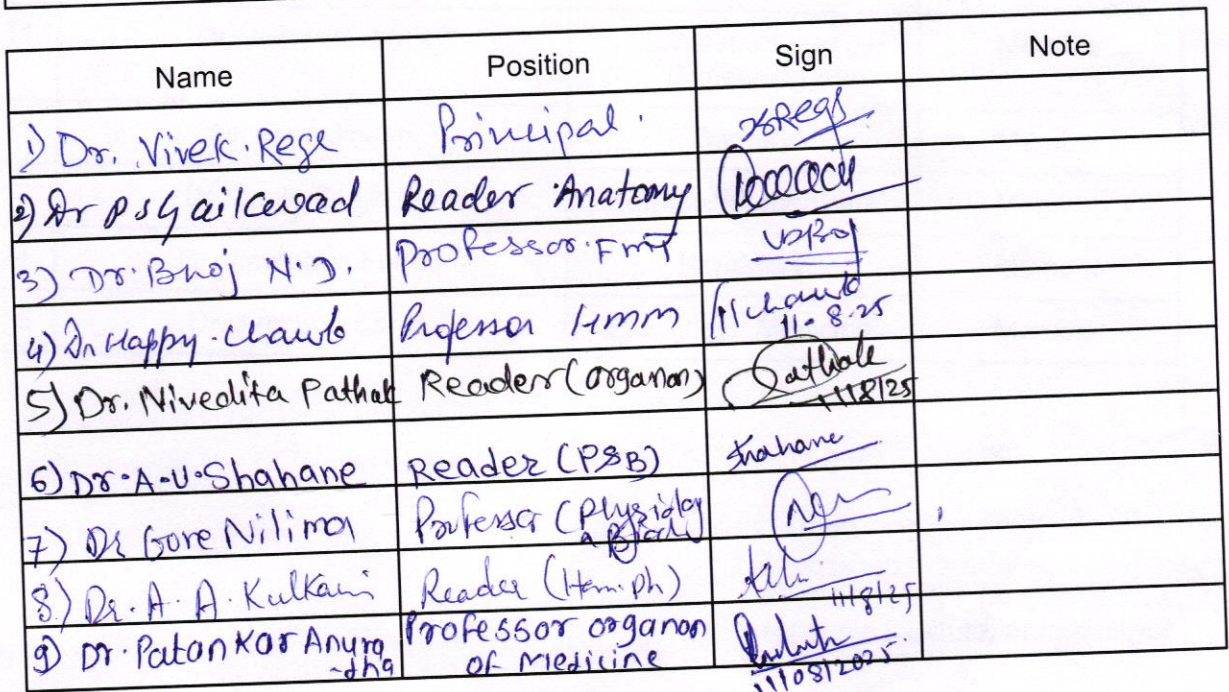 Name Position Sign Note
1) Dr. Vivek. Rege Principal.
2) Dr P S Gaikwad Reader Anatomy
3) Dr. Bhoj N.D. Professor. FMT
4) Dr Happy. Chawb Professor HMM Chawb
11-8-25
5) Dr. Nivedita Pathak Reader (organon) Pathak
11/8/25
6) Dr. A.U. Shahane Reader (PSB) Shahane
7) Dr Gore Nilima Professor (Physiology
8) Dr. A. A. Kulkarni Reader (Hom. Ph)
11/8/25
9) Dr. Patankar Anura Professor organon
-dha of Medicine
11/08/2025